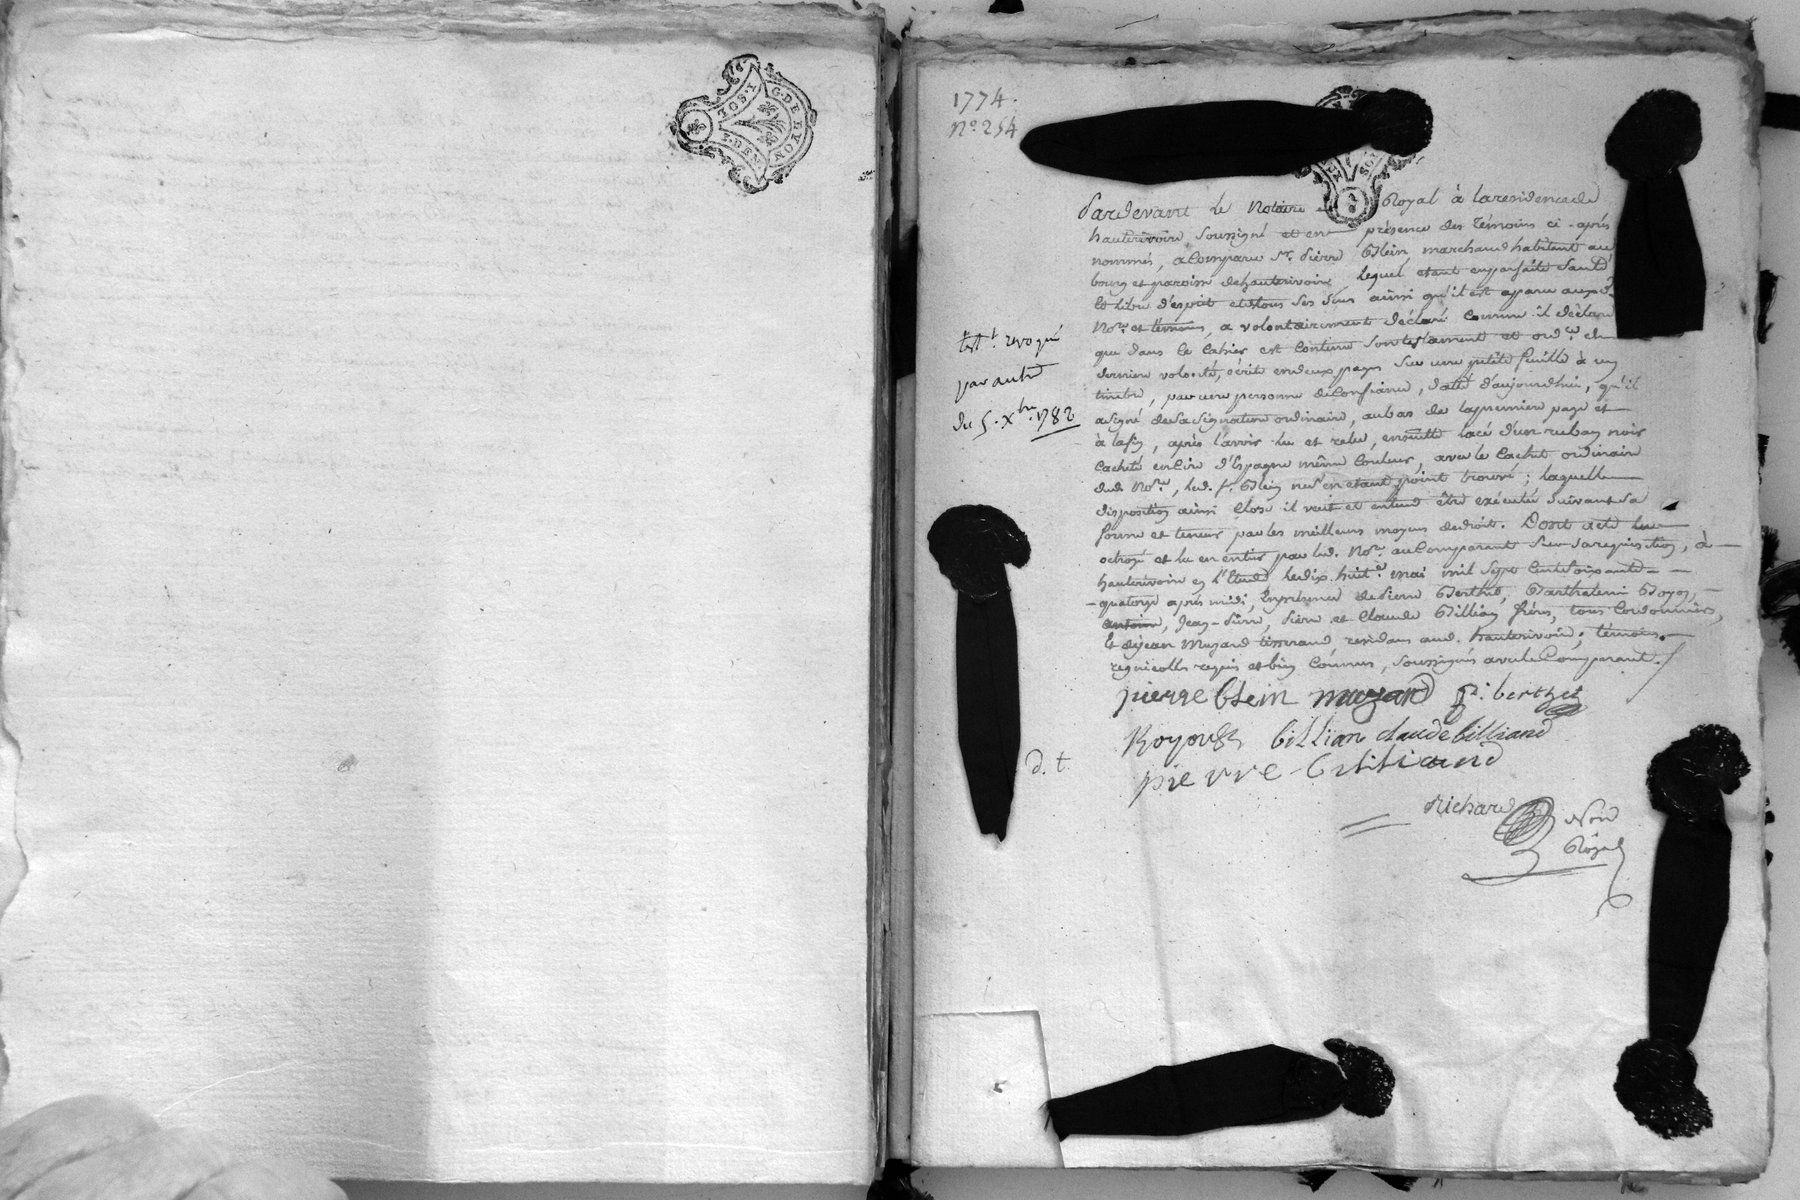 G. DE LYON
1. SOL
4. DEN.
1774.
N.º 254
Pardevant le Notaire Royal à la residence de
hauterivoire, soussigné et en présence des Témoins ci-après
nommés, a Comparu Sr. Pierre Blein, marchand habitant au
bourg et paroisse de hauterivoire, lequel etant en parfaite Santé
Et libre d'esprit et de tous ses sens ainsi qu'il est aparu auxd.
No.re et témoins, a volontairement déclaré Comme il déclare
que dans le Cahier est Contenu son testament et ord.ce de
derniere volonté, écrite en deux pages sur une petite feuille à un
timbre, par une personne de Confiance, datté d'aujourdhui, qu'il
a signé de sa Signature ordinaire, au bas de la premiere page et
à la fin, après l'avoir lu et relu, ensuitte lacé d'un ruban noir
Cacheté en Cire d'Espagne même Couleur, avec le Cachet ordinaire
dud. No.re, led. Sr. Blein ne s'en etant point trouvé; laquelle
disposition ainsi Close il veut et entend être exécutée suivant sa
forme et teneur par les meilleurs moyens de droit. Dont acte
octroyé et lu en entier par led. No.re au Comparant sur sa requisition, à
hauterivoire en l'Etude le dix-huit.e mai mil sept Cent soixante-
-quatorze après midi, En présence de Pierre Berthet, Barthelemi Royon,
antoine, Jean-Pierre, Pierre et Claude Billian frères, tous Cordonniers,
Et de Jean Mazard tisserand residans aud. hauterivoire, témoins
regnicolles requis et bien Connus, soussignés avec le Comparant.
test.t revoqué
par autre
du 5. Xbre. 1782
pierre blein mazard p: berthet
Royon billian claude billiand
d. t.
pierre billiand
Richard No.re
Royal